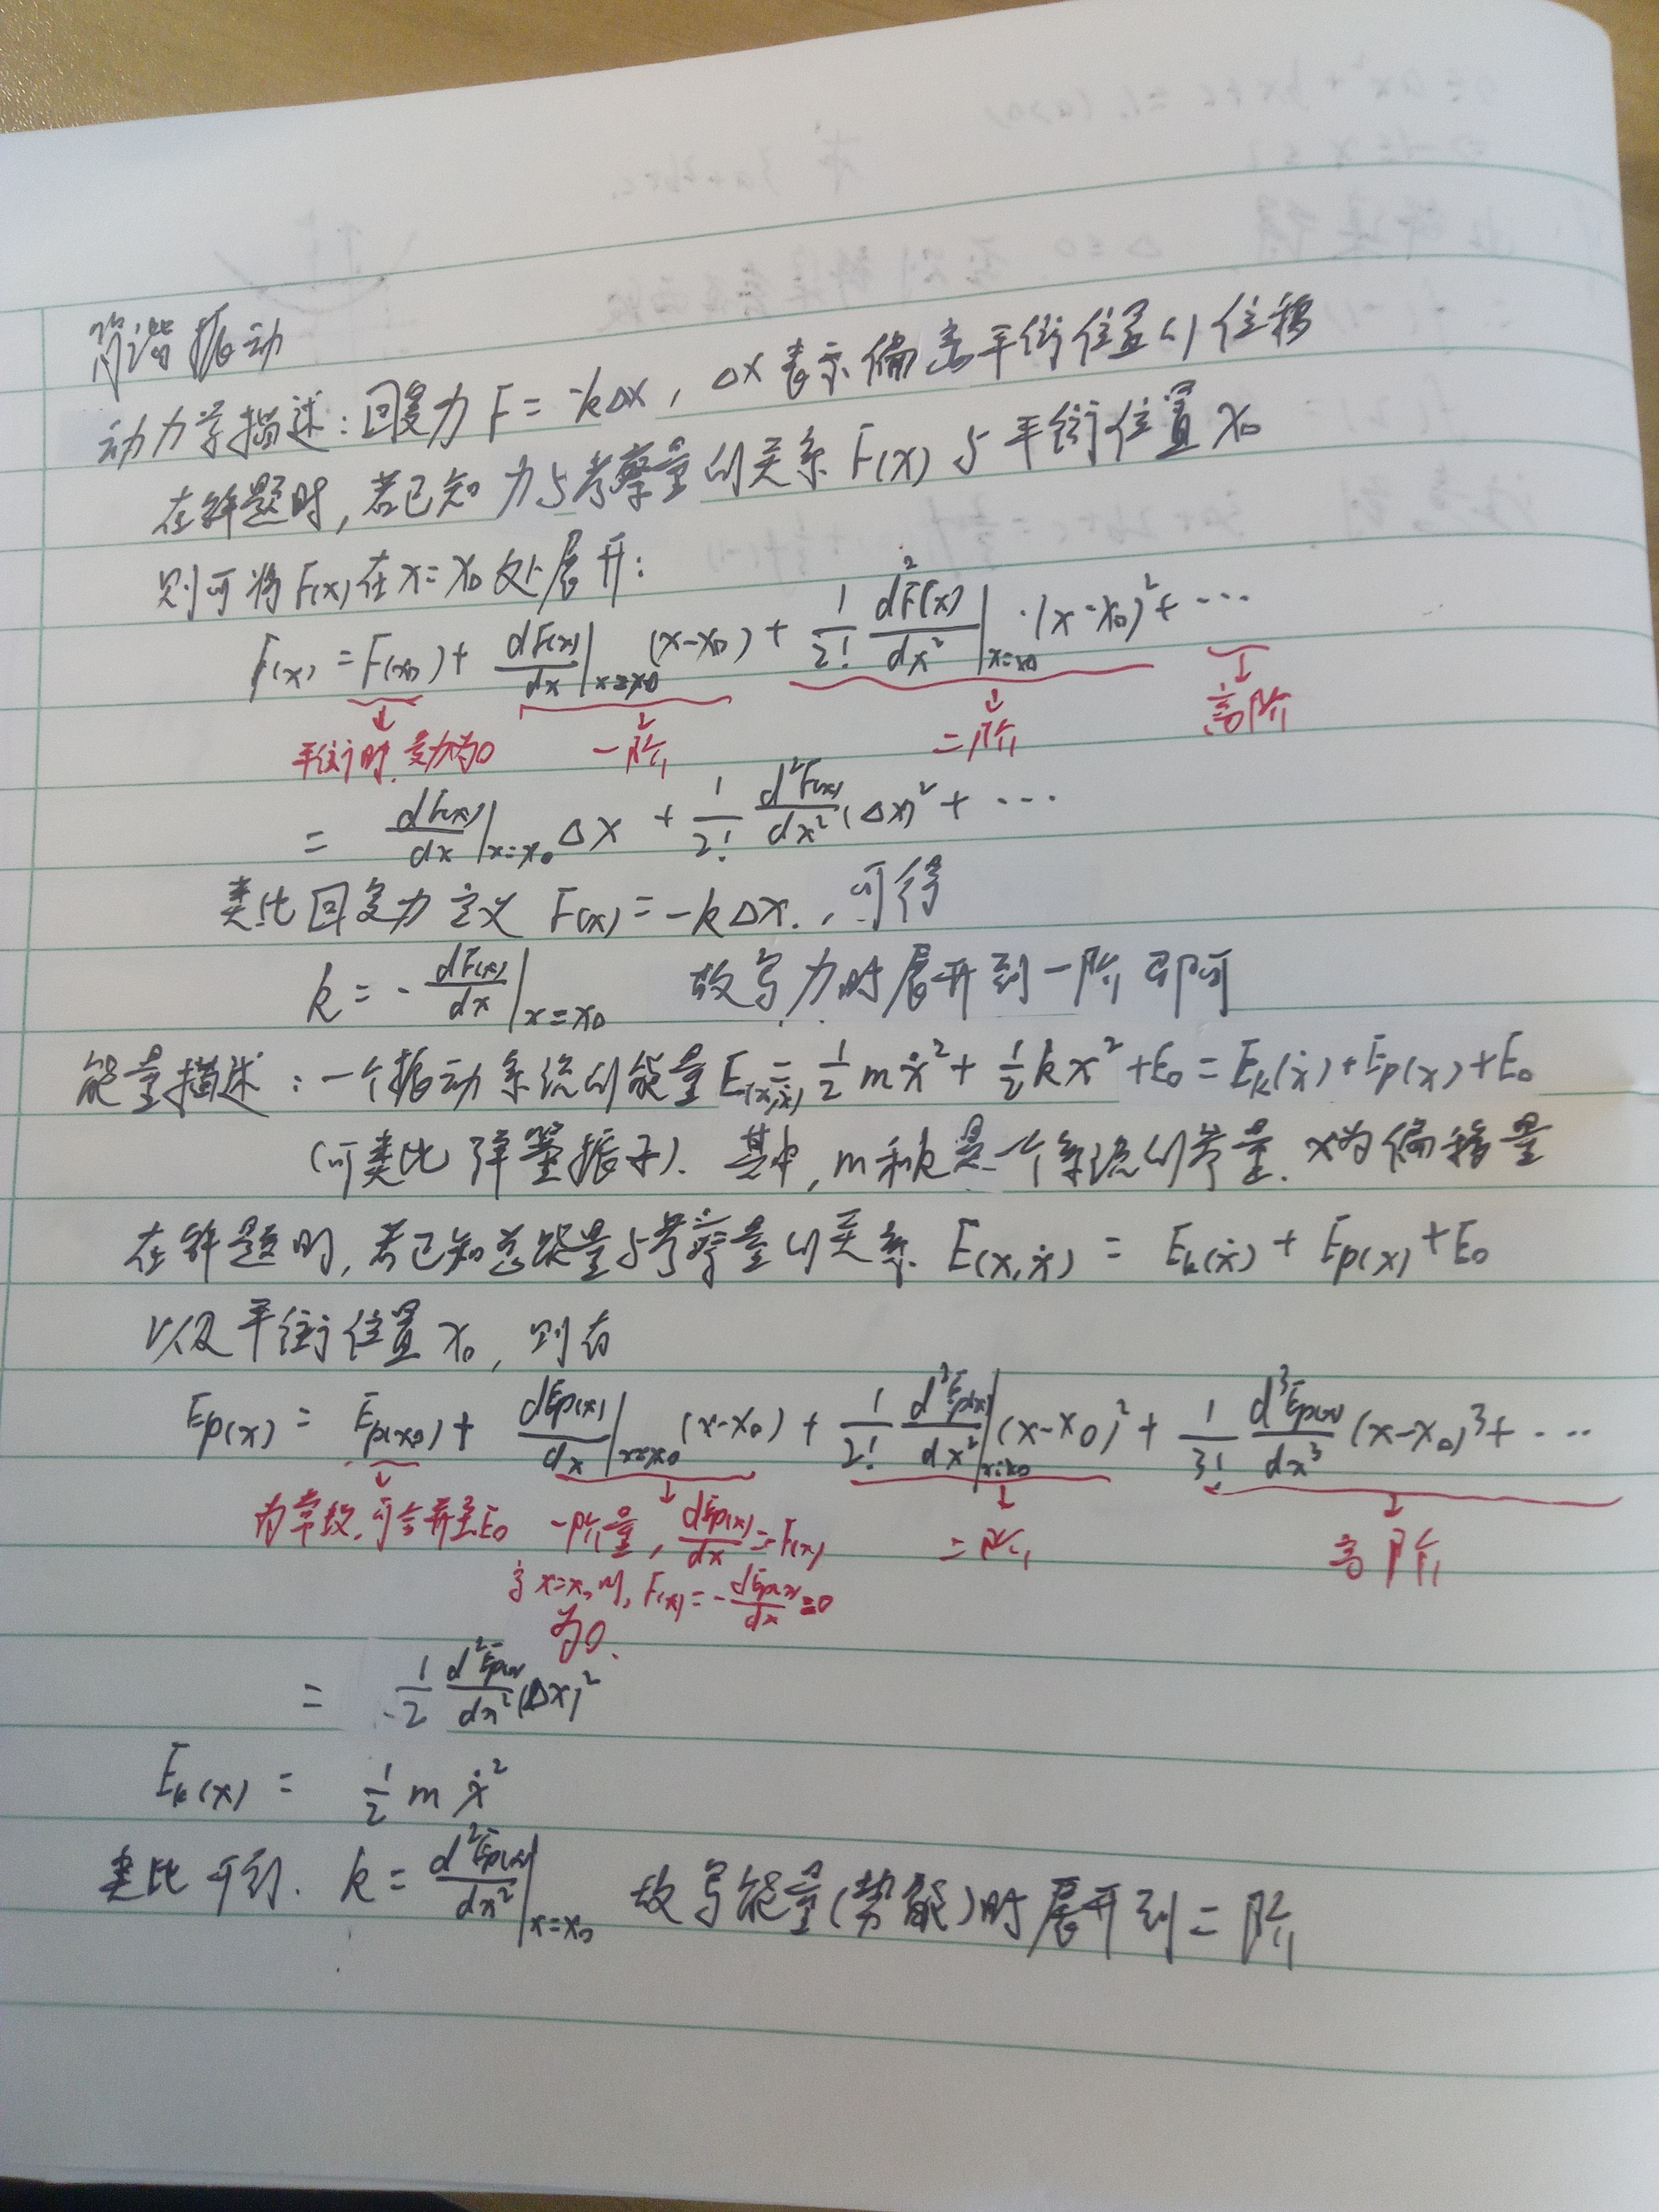 简谐振动
动力学描述:回复力 F = -kΔx, Δx表示偏离平衡位置的位移
在解题时,若已知力与考察量的关系 F(x) 与平衡位置 x₀
则可将F(x)在x=x₀处展开:
F(x) = F(x₀) + dF(x)/dx|x=x₀ (x-x₀) + 1/2! d²F(x)/dx²|x=x₀ ·(x-x₀)² + ···
平衡时,受力为0 一阶 二阶 高阶
= dF(x)/dx|x=x₀ Δx + 1/2! d²F(x)/dx² (Δx)² + ···
类比回复力定义 F(x) = -kΔx, 可得
k = - dF(x)/dx|x=x₀ 故写力时展开到一阶即可
能量描述:一个振动系统的能量E(x,ẋ) = 1/2 mẋ² + 1/2 kx² + E₀ = Ek(ẋ) + Ep(x) + E₀
(可类比弹簧振子). 其中, m和k是一个系统的常量. x为偏移量
在解题时,若已知总能量与考察量的关系 E(x,ẋ) = Ek(ẋ) + Ep(x) + E₀
以及平衡位置 x₀, 则有
Ep(x) = Ep(x₀) + dEp(x)/dx|x=x₀ (x-x₀) + 1/2! d²Ep(x)/dx²|x=x₀ (x-x₀)² + 1/3! d³Ep(x)/dx³ (x-x₀)³ + ···
为常数,可合并至E₀ 一阶量, dEp(x)/dx = -F(x) 二阶 高阶
当x=x₀时, F(x) = - dEp(x)/dx = 0
为0.
= 1/2 d²Ep(x)/dx² (Δx)²
Ek(x) = 1/2 m ẋ²
类比可得. k = d²Ep(x)/dx²|x=x₀ 故写能量(势能)时展开到二阶